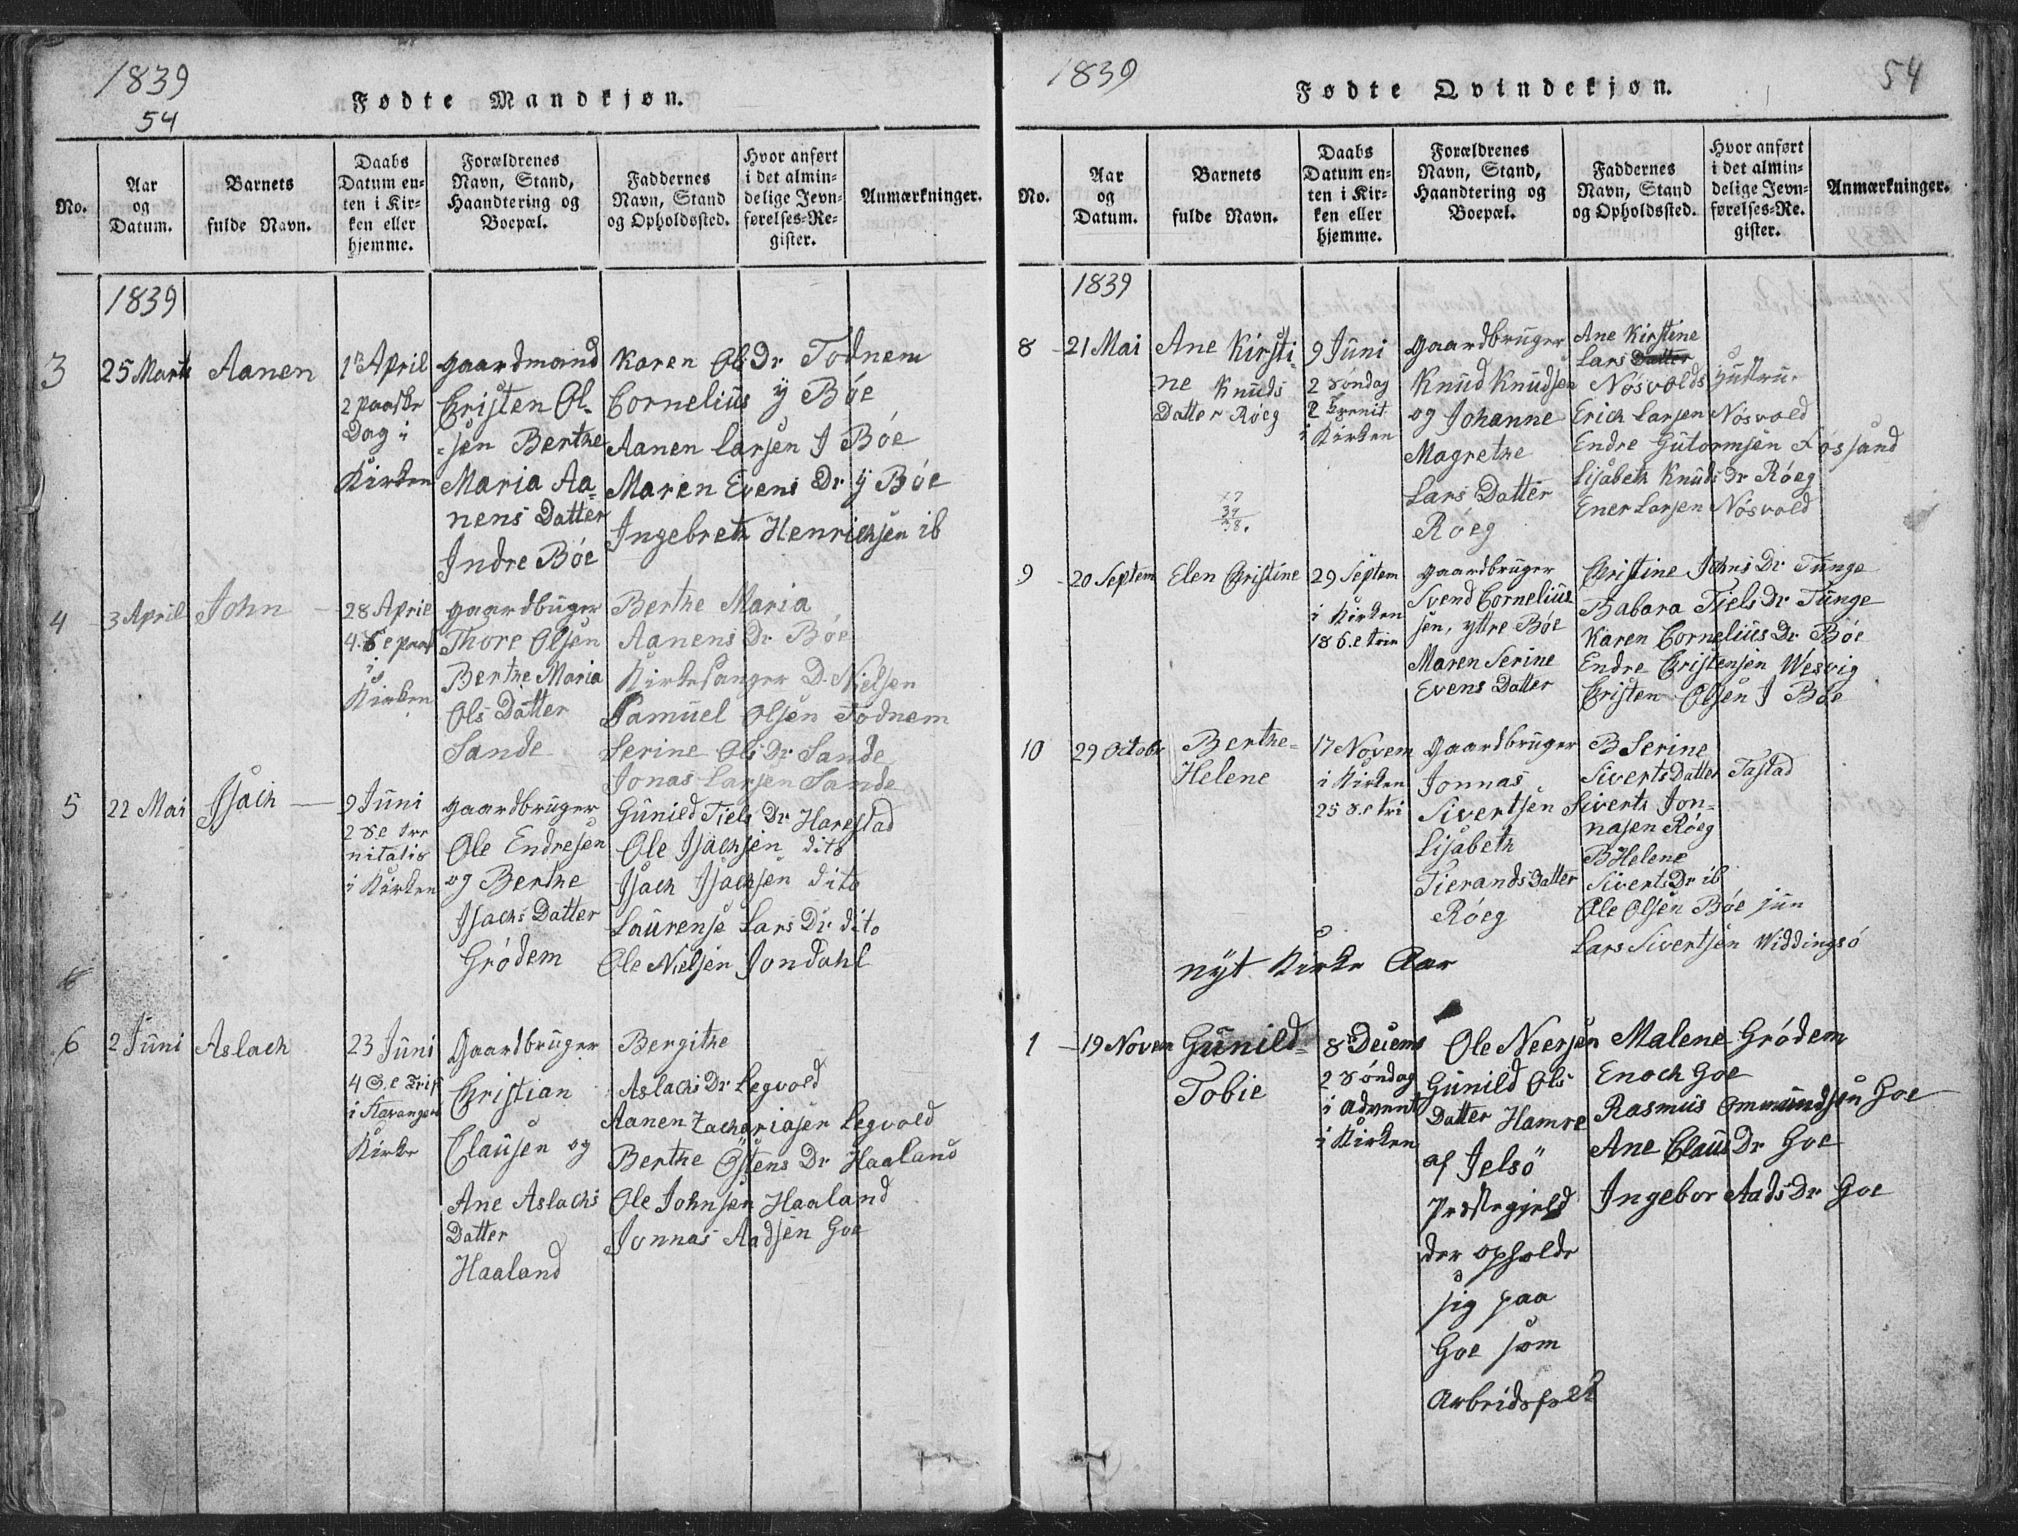 1839
54
Fødte Mandkjøn.
No.
Aar
og
Datum.
Barnets
fulde Navn.
Daabs
Datum en-
ten i Kir-
ken eller
hjemme.
Forældrenes
Navn, Stand,
Haandtering og
Boepæl.
Faddernes
Navn, Stand
og Opholdssted.
Hvor anført
i det almin-
delige Jevn-
førelses-Re-
gister.
Anmærkninger.
1839
3
25 Marts
Aanen
1ste April
2 paaske
Dag i
Kirken
gaardmand
Christen Ol-
-sen Berthe
Maria Aa-
nens Datter
Indre Bóe
Karen Ols Dr Todnem
Cornelius ÿ Bóe
Aanen Larsen I Bóe
Maren Evens Dr ÿ Bóe
Ingebreth Henrichsen ib
4
3 April
John
28 April
4. S e paas
i
Kirken
gaardbruger
Thore Olsen
Berthe Maria
Ols Datter
Sande
Berthe Maria
Aanens Dr Bóe
Kirkesanger D. Nielsen
Samuel Olsen Todnem
Serine Ols Dr Sande
Jonas Larsen Sande
5
22 Mai
Isach
9 Juni
2 S.e tre
nitatis
i Kirken
gaardbruger
Ole Endresen
og Berthe
Isachs Datter
Gródem
Gunild Tiels Dr Harestad
Ole Isachsen dito
Isach Isachsen dito
Laurense Lars Dr dito
Ole Nielsen Jondahl
6
2 Juni
Aslach
23 Juni
4 S.e Tris
i Stavanger
Kirke
Gaardbruger
Christian
Clausen og
Ane Aslachs
Datter
Haaland
Bergithe
Aslachs Dr Legvold
Aanen Zachariasen Legvold
Berthe Östens Dr Haaland
Ole Johnsen Haaland
Jonnas Aadsen Goe
1839
54
Fødte Qvindekjøn.
No.
Aar
og
Datum.
Barnets
fulde Navn.
Daabs
Datum en-
ten i Kir-
ken eller
hjemme.
Forældrenes
Navn, Stand,
Haandtering og
Boepæl.
Faddernes
Navn, Stand
og Opholdssted.
Hvor anført
i det almin-
delige Jevn-
førelses-Re.
gister.
Anmærkninger.
1839
8
21 Mai
Ane Kirsti-
ne Knuds
Datter Róeg
9 Juni
2 Söndag
Trenit
i Kirken
gaardbruger
Knud Knudsen
og Johanne
Magrethe
Lars Datter
Roeg
Ane Kirstine
Lars Datter
Nósvolds Hustru.
Erich Larsen Nósvold
Endre Gutormsen Fossand
Lisabeth Knuds Dr Róeg
Ener Larsen Nósvold
9
20 Septem
Elen Christine
29 Septem
i Kirken
18 S.e trin
gaardbruger
Svend Cornelius
sen, yttre Bóe
Maren Serine
Evens Datter
Christine Johns Dr Tunge
Babara Tiels Dr Tunge
Karen Cornelius Dr Bóe
Endre Christensen Wesvig
Christen Olsen I Bóe
10
29 Octobr
Berthe-
Helene
17 Novem
i Kirken
25 S.e tri
gaardbruger
Jonnas
Sivertsen
Lisabeth
Tierands Datter
Róeg
B Serine
Siverts Datter Tastad
Siverts Jon-
nasen Róeg
B Helene
Siverts Dr ib
Ole Olsen Bóe jun
Lars Sivertsen Widdingsó
nÿt Kirke Aar
1
19 Novem
Gunild-
Tobie
8 Decems
2 Söndag
i Advent
i Kirken
Ole Neersen
Gunild Ols
Datter Hamre
af Jelsö
Præstegjeld
der opholde
sig paa
Goe som
Arbeidsfolk
Malene Gródem
Enoch Goe
Rasmus Ommundsen Goe
Ane Claus Dr Goe
Ingebor Aads Dr Goe